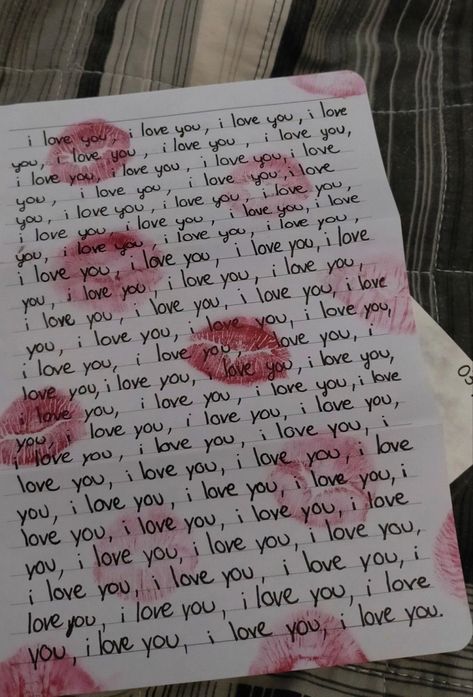 i love you, i love you, i love you, i love
you, i love you, i love you, i love you,
i love you, i love you, i love you, i love
you, i love you, i love you, i love
you, i love you, i love you, i love you,
i love you, i love you, i love you, i love
you, i love you, i love you, i love you,
i love you, i love you, i love you, i love
you, i love you, i love you, i love you,
i love you, i love you, i love you, i love
you, i love you, i love you, i love you,
i love you, i love you, i love you, i
love you, i love you, i love you, i love you,
i love you, i love you, i love you, i love
you, i love you, i love you, i love you,
i love you, i love you, i love you, i
love you, i love you, i love you, i love
you, i love you, i love you, i love you, i
love you, i love you, i love you, i love
you, i love you, i love you, i love you,
i love you, i love you, i love you, i
love you, i love you, i love you, i love
you, i love you, i love you, i love you.